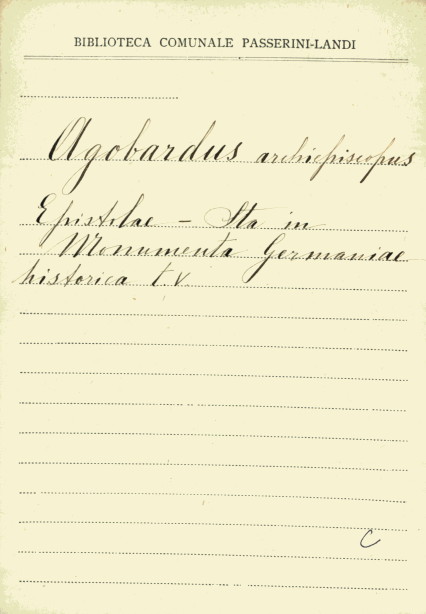 BIBLIOTECA COMUNALE PASSERINI-LANDI
Agobardus archiepiscopus
Epistolae - Sta in
Monumenta Germaniae
historica t. V
C